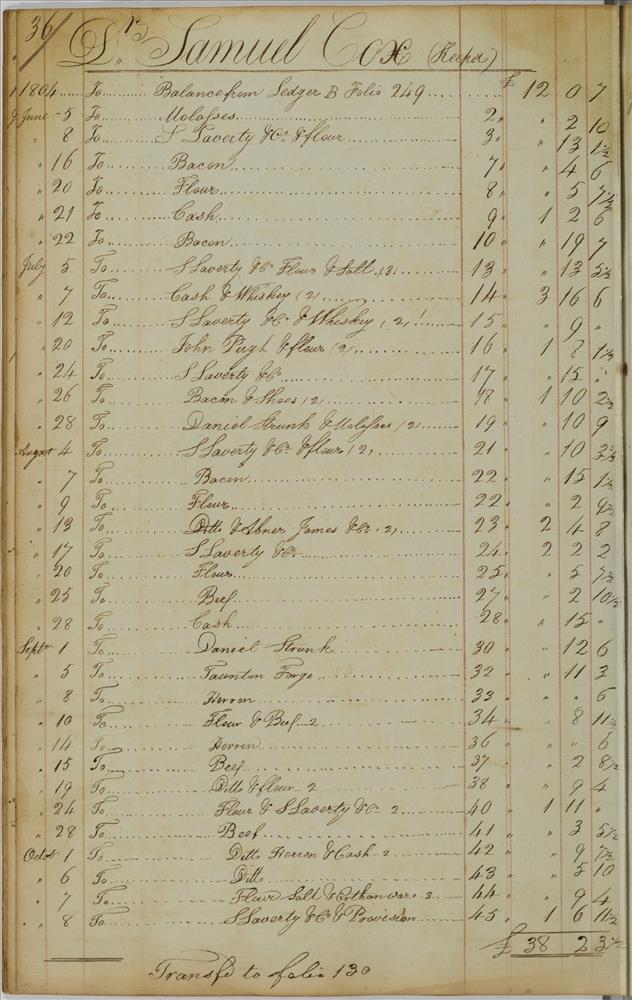 36 Dr. Samuel Cox (Keeper)
1804 To Balance from Ledger B Folio 249 £ 12 0 7
June 5 To Molasses 2 " 2 10
" 8 To S Laverty & Co & flour 3 " 13 1½
" 16 To Bacon 7 " 4 6
" 20 To Flour 8 " 5 7½
" 21 To Cash 9 1 2 6
" 22 To Bacon 10 " 19 7
July 5 To S Laverty & Co Flour & Salt (3) 13 " 13 5½
" 7 To Cash & Whiskey (2) 14 3 16 6
" 12 To S Laverty & Co & Whiskey (2) 15 " 9 "
" 20 To John Pugh & flour (2) 16 1 8 1½
" 24 To S Laverty & Co 17 " 15 "
" 26 To Bacon & Shoes (2) 18 1 10 2½
" 28 To Daniel Strunk & Molasses (2) 19 " 10 9
August 4 To S Laverty & Co & flour (2) 21 " 10 3½
" 7 To Bacon 22 " 15 1½
" 9 To Flour 22 " 2 9½
" 13 To Ditto & Abner James & Co 2) 23 2 4 8
" 17 To S Laverty & Co 24 2 2 2
" 20 To Flour 25 " 5 7½
" 25 To Beef 27 " 2 10½
" 28 To Cash 28 " 15 "
Septr 1 To Daniel Strunk 30 " 12 6
" 5 To Taunton Forge 32 " 11 3
" 8 To Herren 33 " " 6
" 10 To Flour & Beef 2 34 " 8 11½
" 14 To Herren 36 " " 6
" 15 To Beef 37 " 2 8½
" 19 To Ditto & flour 2 38 " 9 4
" 24 To Flour & S Laverty & Co 2 40 1 11 "
" 28 To Beef 41 " 3 5½
Octor 1 To Ditto Herren & Cash 2 42 " 9 7½
" 6 To Ditto 43 " 5 10
" 7 To Flour Salt & Earthanware 3 44 " 9 4
" 8 To S Laverty & Co & Provision 45 1 6 11½
£ 38 2 3½
Transfd to folio 130